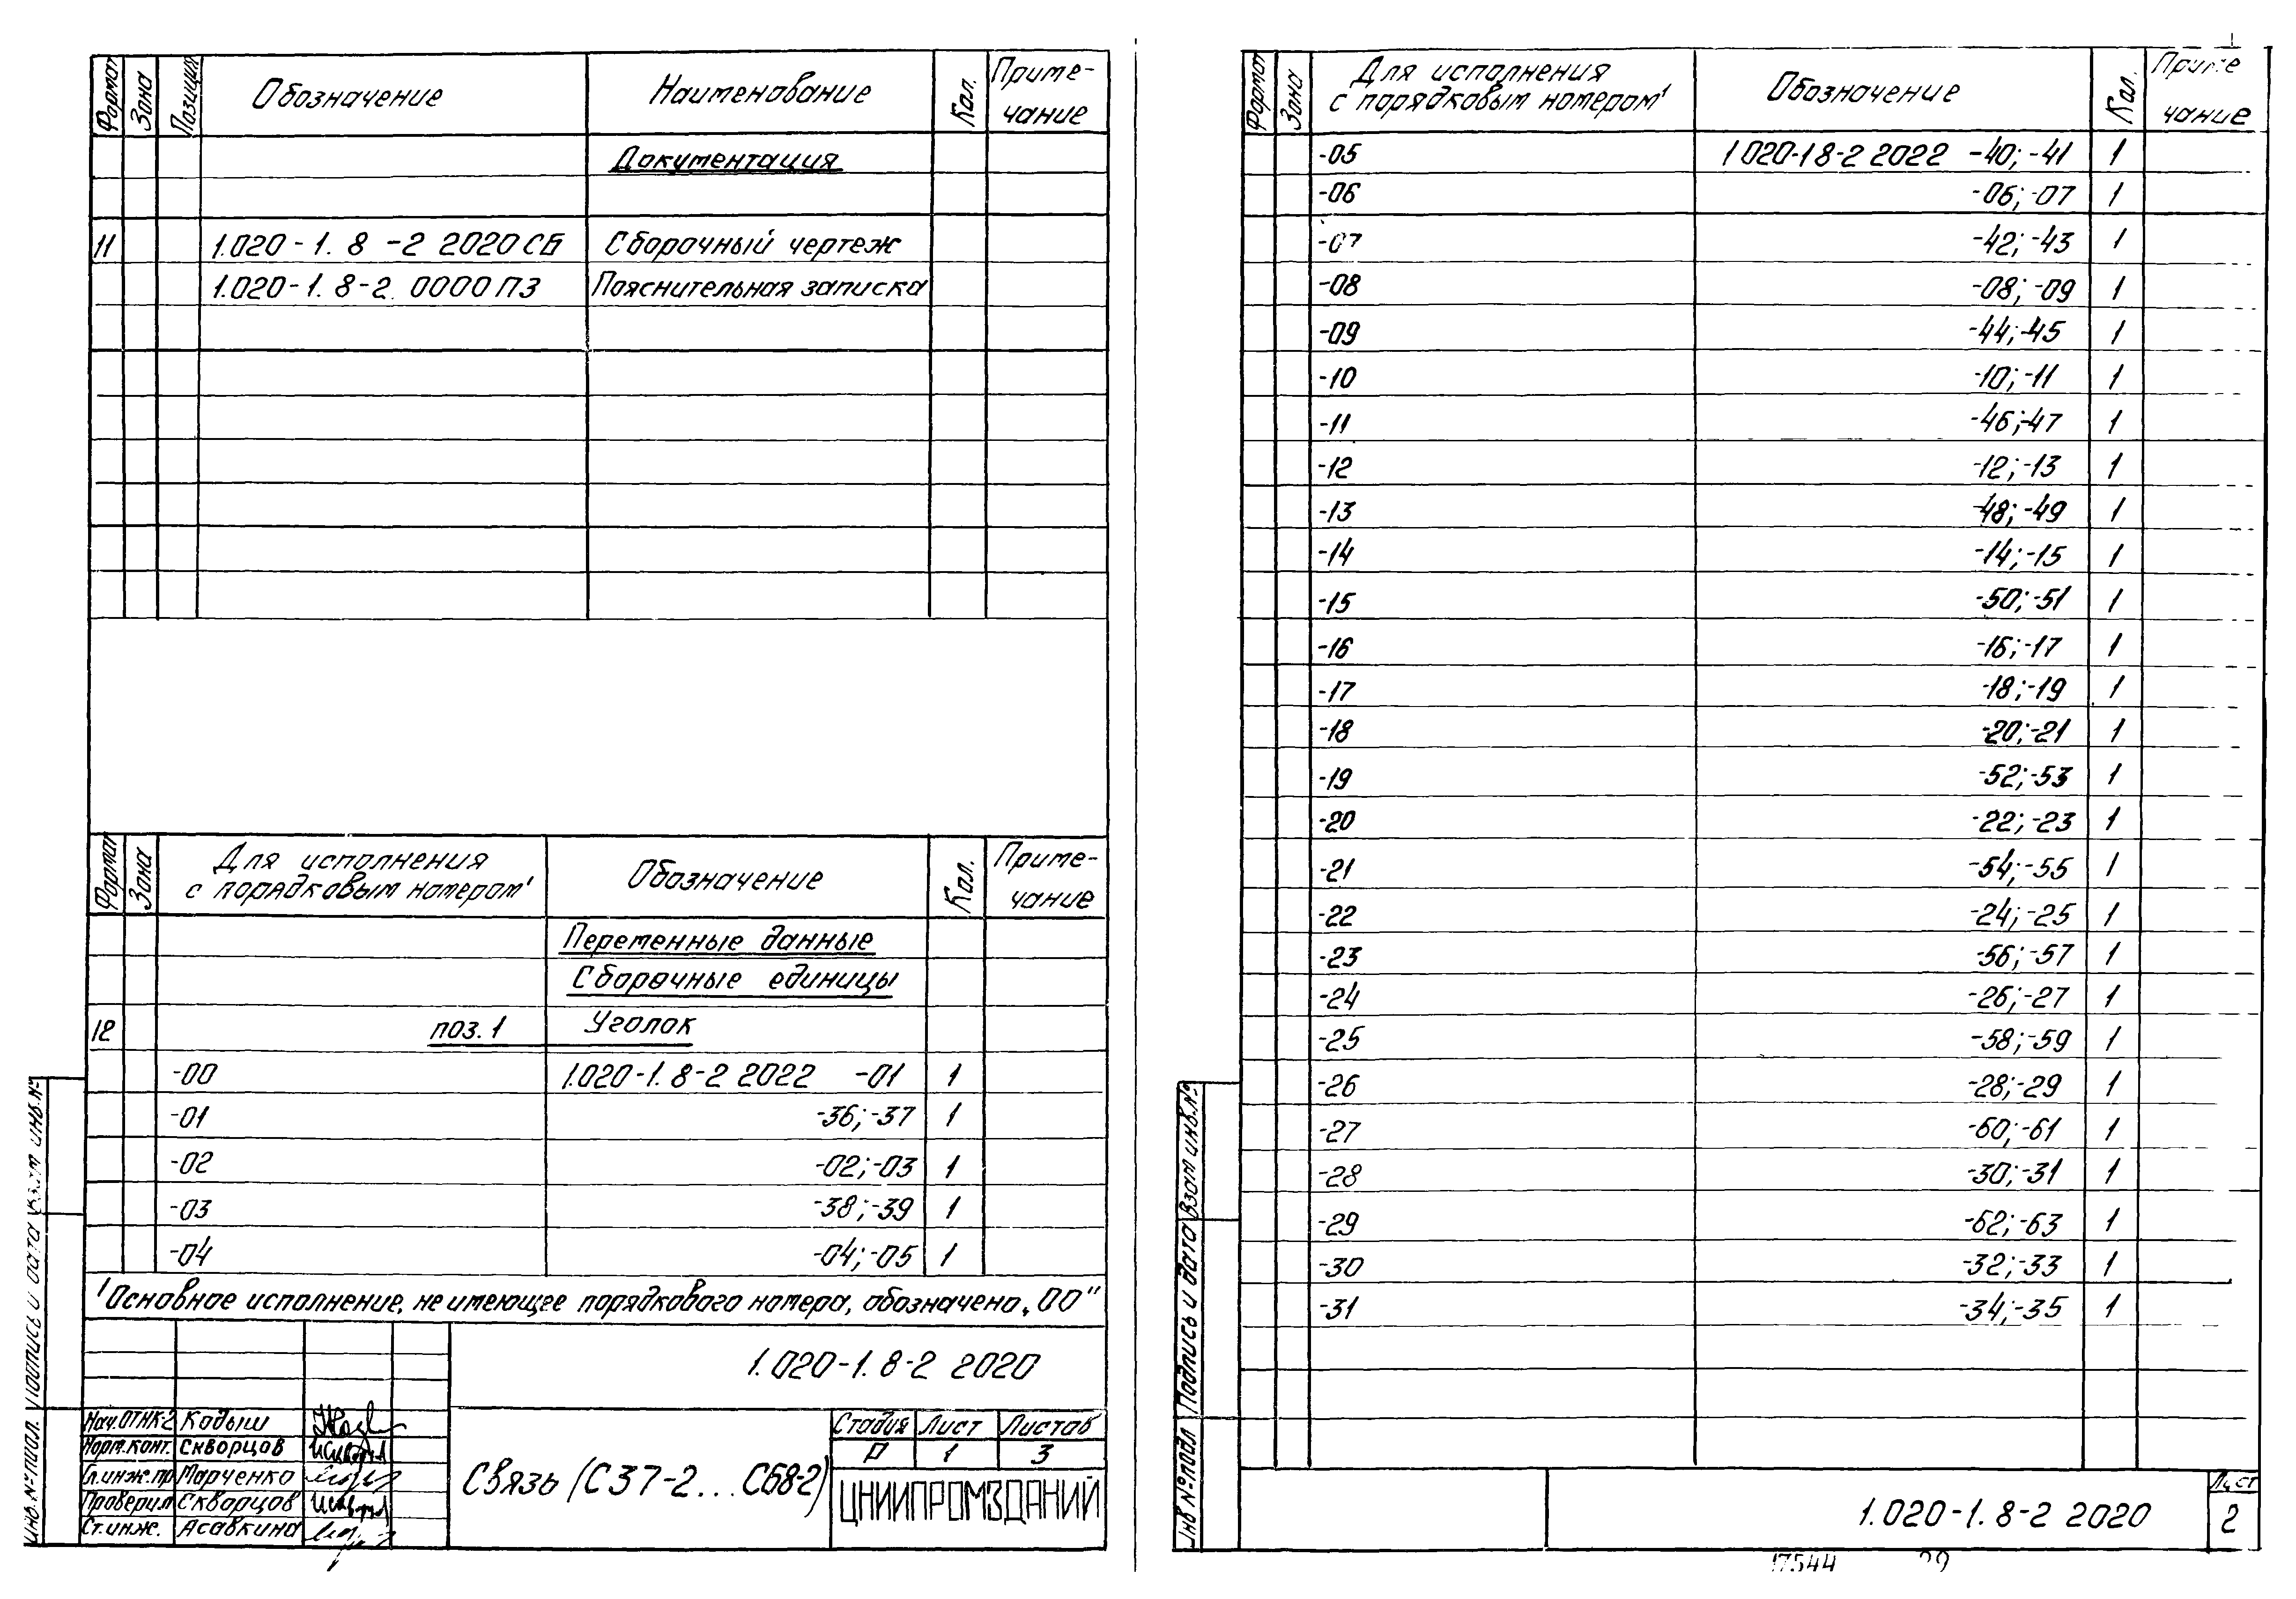 Формат Зона Позиция Обозначение Наименование Кол. Приме-
чание
Документация
11 1.020-1. 8 -2 2020 СБ Сборочный чертеж
1.020-1. 8-2. 0000 ПЗ Пояснительная записка
Формат Зона Для исполнения
с порядковым номером¹ Обозначение Кол. Приме-
чание
Переменные данные
Сборочные единицы
12 поз. 1 Уголок
-00 1.020-1. 8-2 2022 -01 1
-01 -36; -37 1
-02 -02; -03 1
-03 -38; -39 1
-04 -04; -05 1
¹Основное исполнение, не имеющее порядкового номера, обозначено „00"
1.020-1. 8-2 2020
Нач.ОТНК-2 Кодыш
Норм.конт. Скворцов
Гл.инж.пр. Марченко
Проверил Скворцов
Ст.инж. Асавкина
Связь (С37-2...С68-2)
Стадия Лист Листов
Р 1 3
ЦНИИПРОМЗДАНИЙ
Инв.№ подл. Подпись и дата Взам инв.№
Формат Зона Для исполнения
с порядковым номером¹ Обозначение Кол. Приме
чание
-05 1 020-1 8-2 2022 -40; -41 1
-06 -06; -07 1
-07 -42; -43 1
-08 -08; -09 1
-09 -44; -45 1
-10 -10; -11 1
-11 -46; -47 1
-12 -12; -13 1
-13 -48; -49 1
-14 -14; -15 1
-15 -50; -51 1
-16 -16; -17 1
-17 -18; -19 1
-18 -20; -21 1
-19 -52; -53 1
-20 -22; -23 1
-21 -54; -55 1
-22 -24; -25 1
-23 -56; -57 1
-24 -26; -27 1
-25 -58; -59 1
-26 -28; -29 1
-27 -60; -61 1
-28 -30; -31 1
-29 -62; -63 1
-30 -32; -33 1
-31 -34; -35 1
Инв № подл Подпись и дата Взам инв.№
1.020-1. 8-2 2020
Лист
2
17544 29